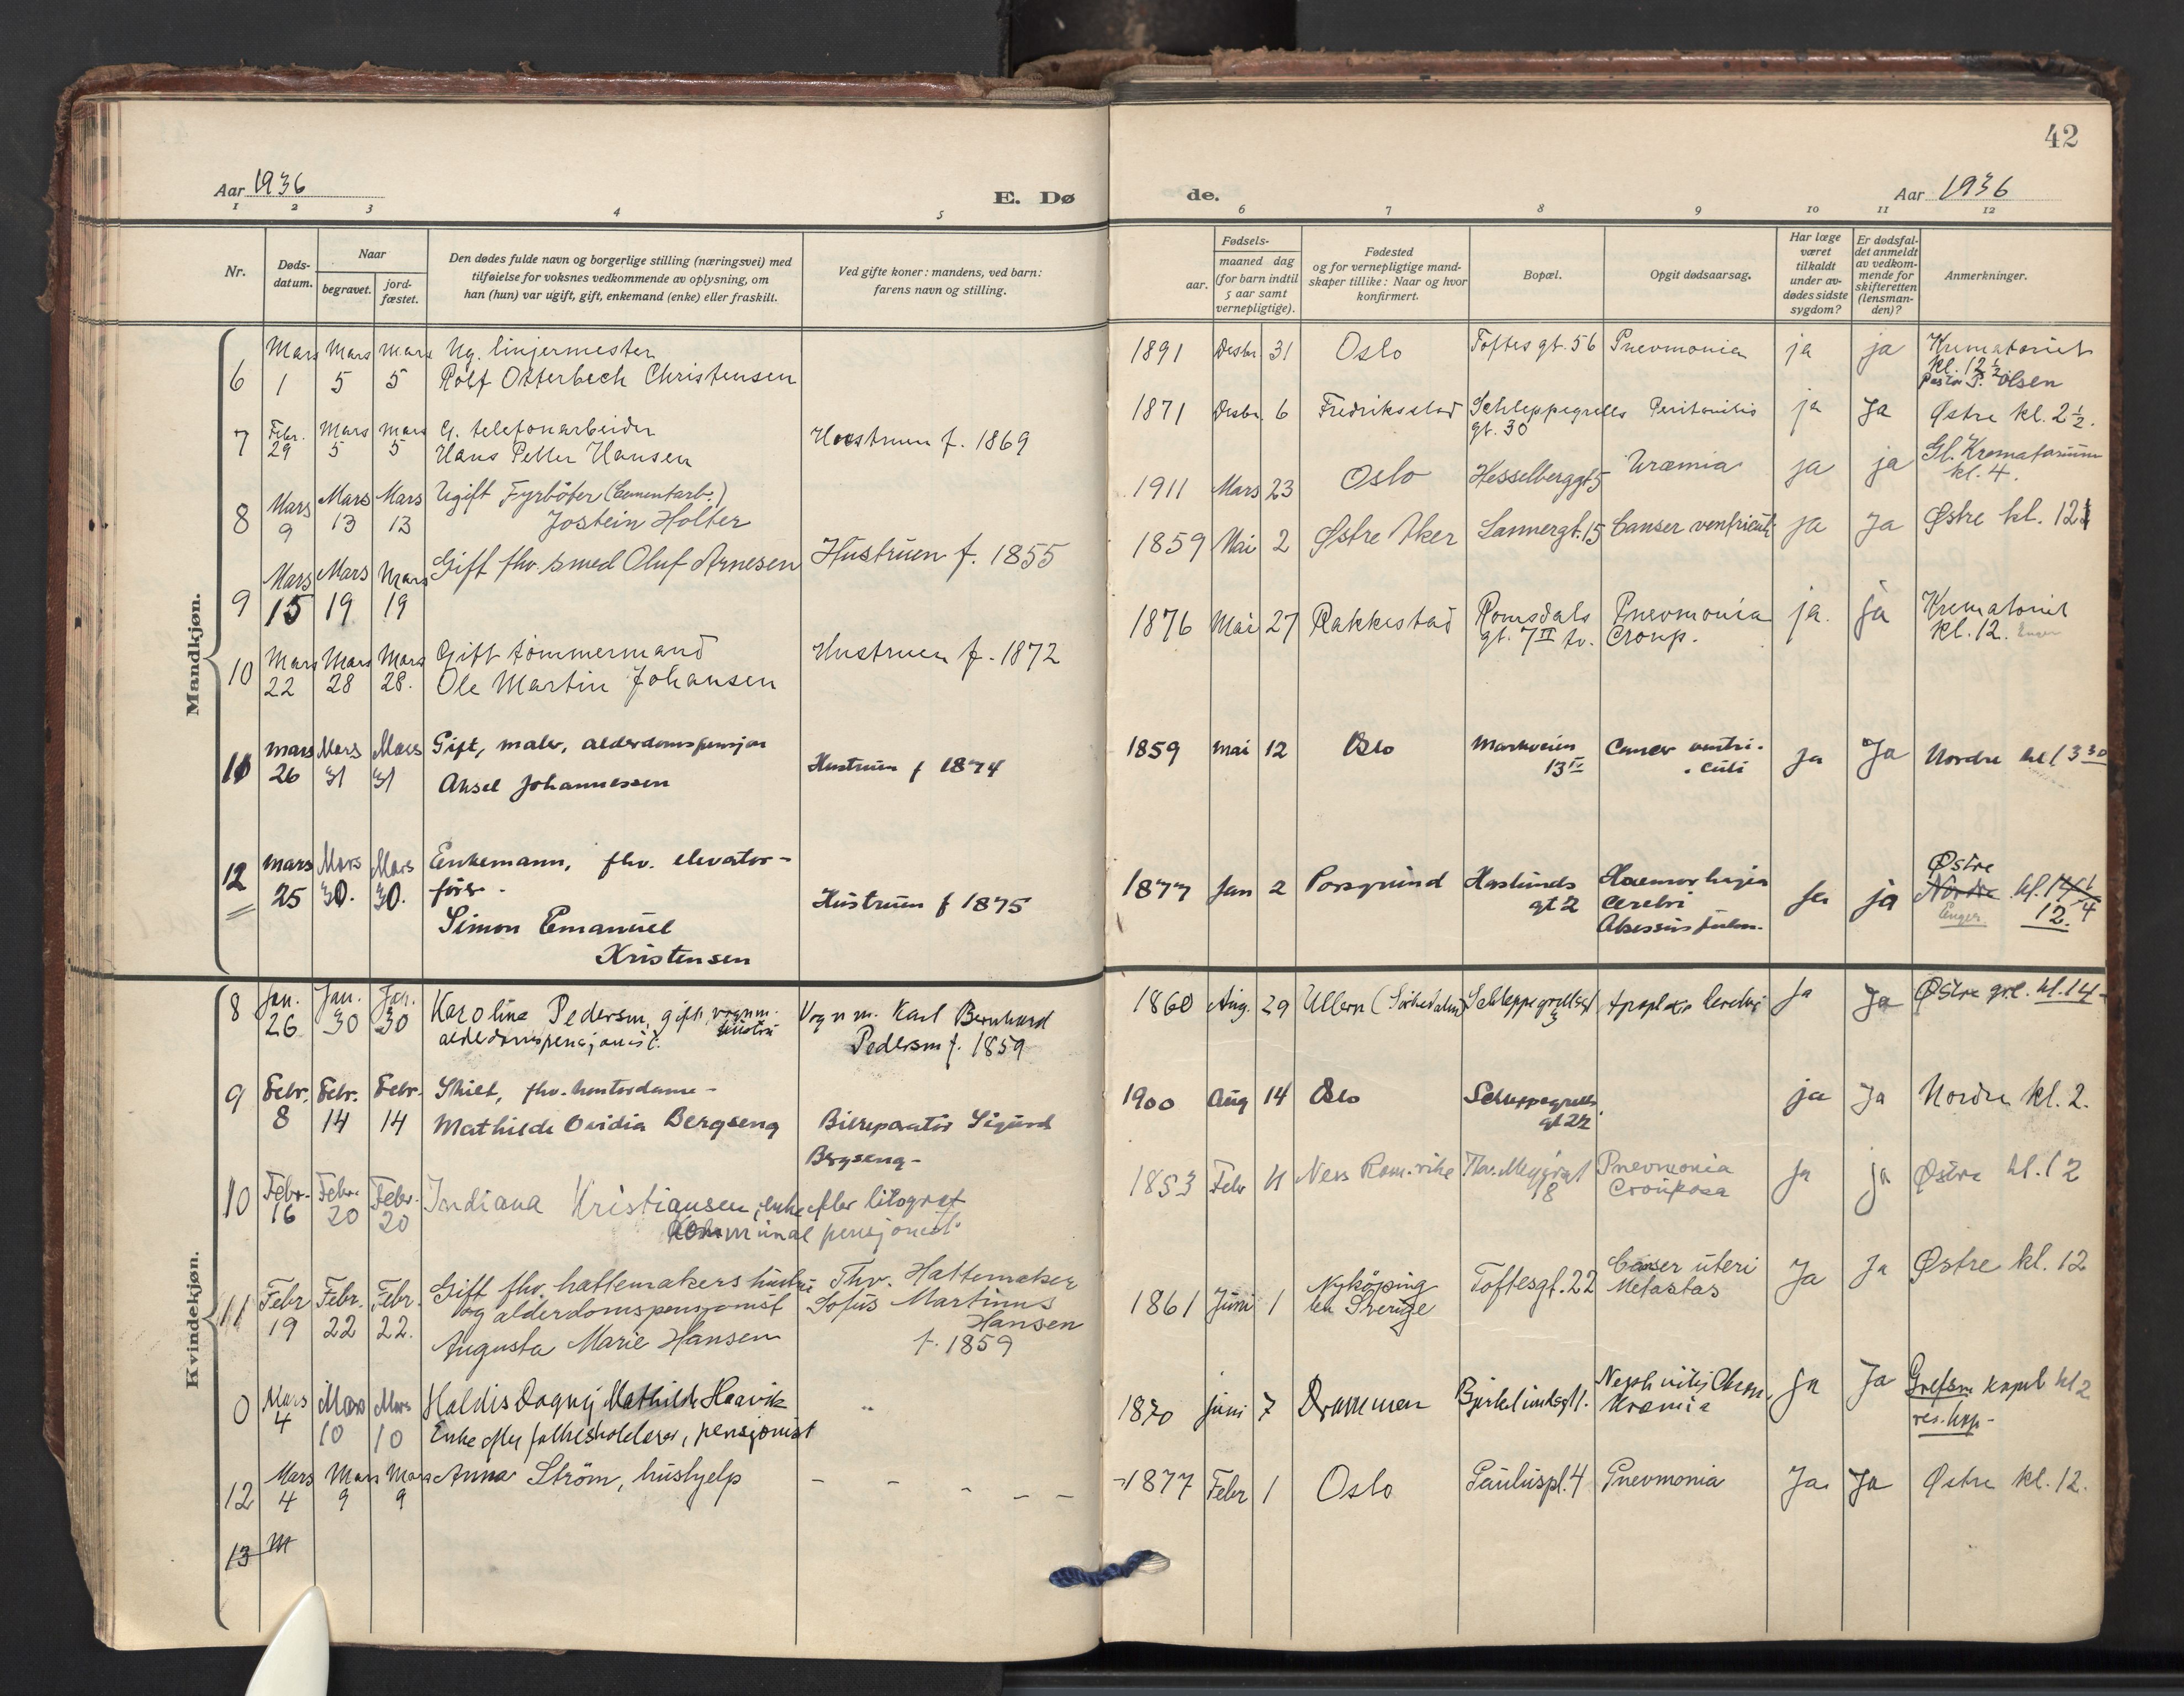 42
Aar 1936
E. Dø
de.
Aar 1936
1 2 3 4 5
6 7 8 9 10 11 12
Nr.
Døds-
datum.
Naar
begravet.
jord-
fæstet.
Den dødes fulde navn og borgerlige stilling (næringsvei) med
tilføielse for voksnes vedkommende av oplysning, om
han (hun) var ugift, gift, enkemand (enke) eller fraskilt.
Ved gifte koner: mandens, ved barn:
farens navn og stilling.
aar.
Fødsels-
maaned dag
(for barn indtil
5 aar samt
vernepligtige).
Fødested
og for vernepligtige mand-
skaper tillike: Naar og hvor
konfirmert.
Bopæl.
Opgit dødsaarsag.
Har læge
været
tilkaldt
under av-
dødes sidste
sygdom?
Er dødsfal-
det anmeldt
av vedkom-
mende for
skifteretten
(lensman-
den)?
Anmerkninger.
Mandkjøn.
6 Mars 1 Mars 5 Mars 5 Ug. linjermester
Rolf Otterbech Christensen
1891 Desbr. 31 Oslo Toftes gt. 56 Pnevmonia ja ja Krematoriet
kl. 12 1/2
Pastor Olsen
7 Febr. 29 Mars 5 Mars 5 G. telefonarbeider
Hans Petter Hansen
Hustruen f. 1869
1871 Desbr. 6 Fredriksstad Schleppegrells
gt. 30
Peritonitis ja Ja Østre kl. 2 1/2.
8 Mars 9 Mars 13 Mars 13 Ugift Fyrbøter (Cementarb.)
Jostein Holter
1911 Mars 23 Oslo Hesselberggt 5 Uræmia ja ja Gl. Krematorium
kl. 4.
9 Mars 15 Mars 19 Mars 19 Gift fhv. smed Oluf Arnesen
Hustruen f. 1855
1859 Mai 2 Østre Aker Sannergt. 15 Canser ventriculi ja Ja Østre kl. 12
10 Mars 22 Mars 28 Mars 28. Gift tømmermand
Ole Martin Johansen
Hustruen f. 1872
1876 Mai 27 Rakkestad Romsdals
gt. 7 II tv.
Pnevmonia
Croup.
ja. ja Krematoriet
kl. 12. Enger
11 Mars 26 Mars 31 Mars 31 Gift, maler, alderdomspensjon
Aksel Johannessen
Hustruen f 1874
1859 Mai 12 Oslo Markveien
13 II
Cancer ventri-
culi
Ja Ja Nordre kl 3 30
12 Mars 25 Mars 30. Mars 30. Enkemann, fhv. elevator-
fører.
Simon Emanuel
Kristensen
Hustruen f 1875
1877 Jan 2 Porsgrund Haslunds
gt 2
Haemorhagia
Cerebri
Absessus pulm.
Ja ja Østre
Nordre kl.
Enger. 12.
Kvindekjøn.
8 Jan. 26 Jan. 30 Jan. 30 Karoline Pedersen, gift, vognm.
hustru
alderdomspensjonist.
Vognm. Karl Bernhard
Pedersen f. 1859
1860 Aug. 29 Ullern (Sørkedalen) Schleppegrellsgt
3
Apoplexia Cerebri Ja Ja Østre grl. kl. 14-
9 Febr. 8 Febr. 14 Febr. 14 Skilt, fhv. kontordame -
Mathilde Ovidia Bergseng
Bilreparatør Sigurd
Bergseng -
1900 Aug 14 Oslo Schleppegrells
gt 22
ja Ja Nordre kl. 2.
10 Febr. 16 Febr. 20 Febr. 20 Indiana Kristiansen, enke efter litograf
Kommunal pensjonist.
1853 Febr 11 Ness Rom.rike Thv. Meyersgt
8
Pnevmonia
Crouposa
Ja ja Østre kl. 12
11 Febr 19 Febr. 22 Febr. 22. Gift fhv. hattemakers hustru
og alderdomspensjonist
Augusta Marie Hansen
Fhv. Hattemaker
Sofus Martinus
Hansen
f. 1859
1861 Juni 1 Nykøping
Sverige
Toftesgt. 22 Canser uteri
Metastas
Ja Ja Østre kl. 12
0 Mars 4 Mars 10 Mars 10 Haldis Dagny Mathilde Haavik
Enke efter , pensjonist
1870 juni 7 Drammen Birkelundsgt 1. Nephritis Chron.
Uræmia
Ja Ja Grefsen kapel kl 2
res. kap -
12 Mars 4 Mars 9 Mars 9 Anna Strøm, hushjelp - - - - -
1877 Febr 1 Oslo Pauluspl. 4 Pnevmonia Ja Ja Østre kl. 12.
13 M